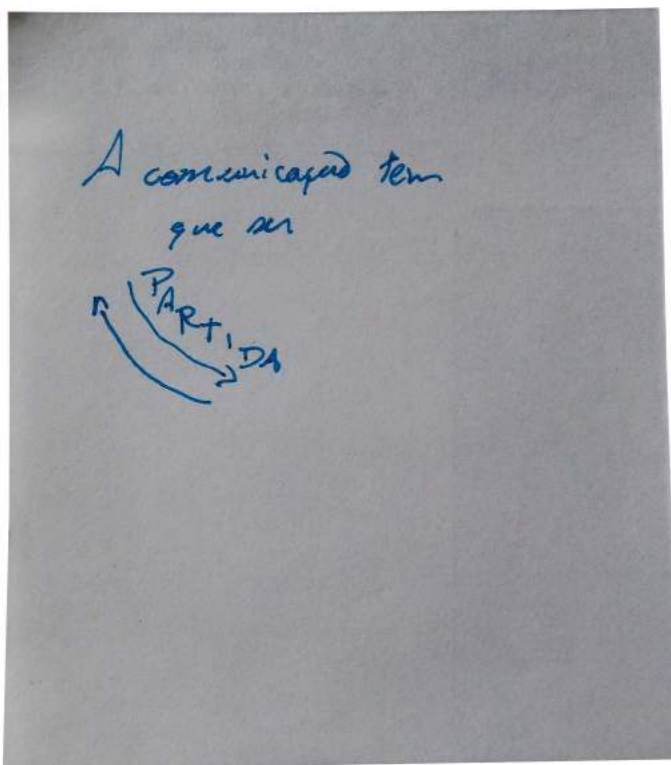 A comunicação tem
que ser
PARTIDA